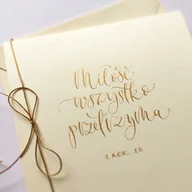 Miłość
wszystko
przetrzyma
1 KOR. 13